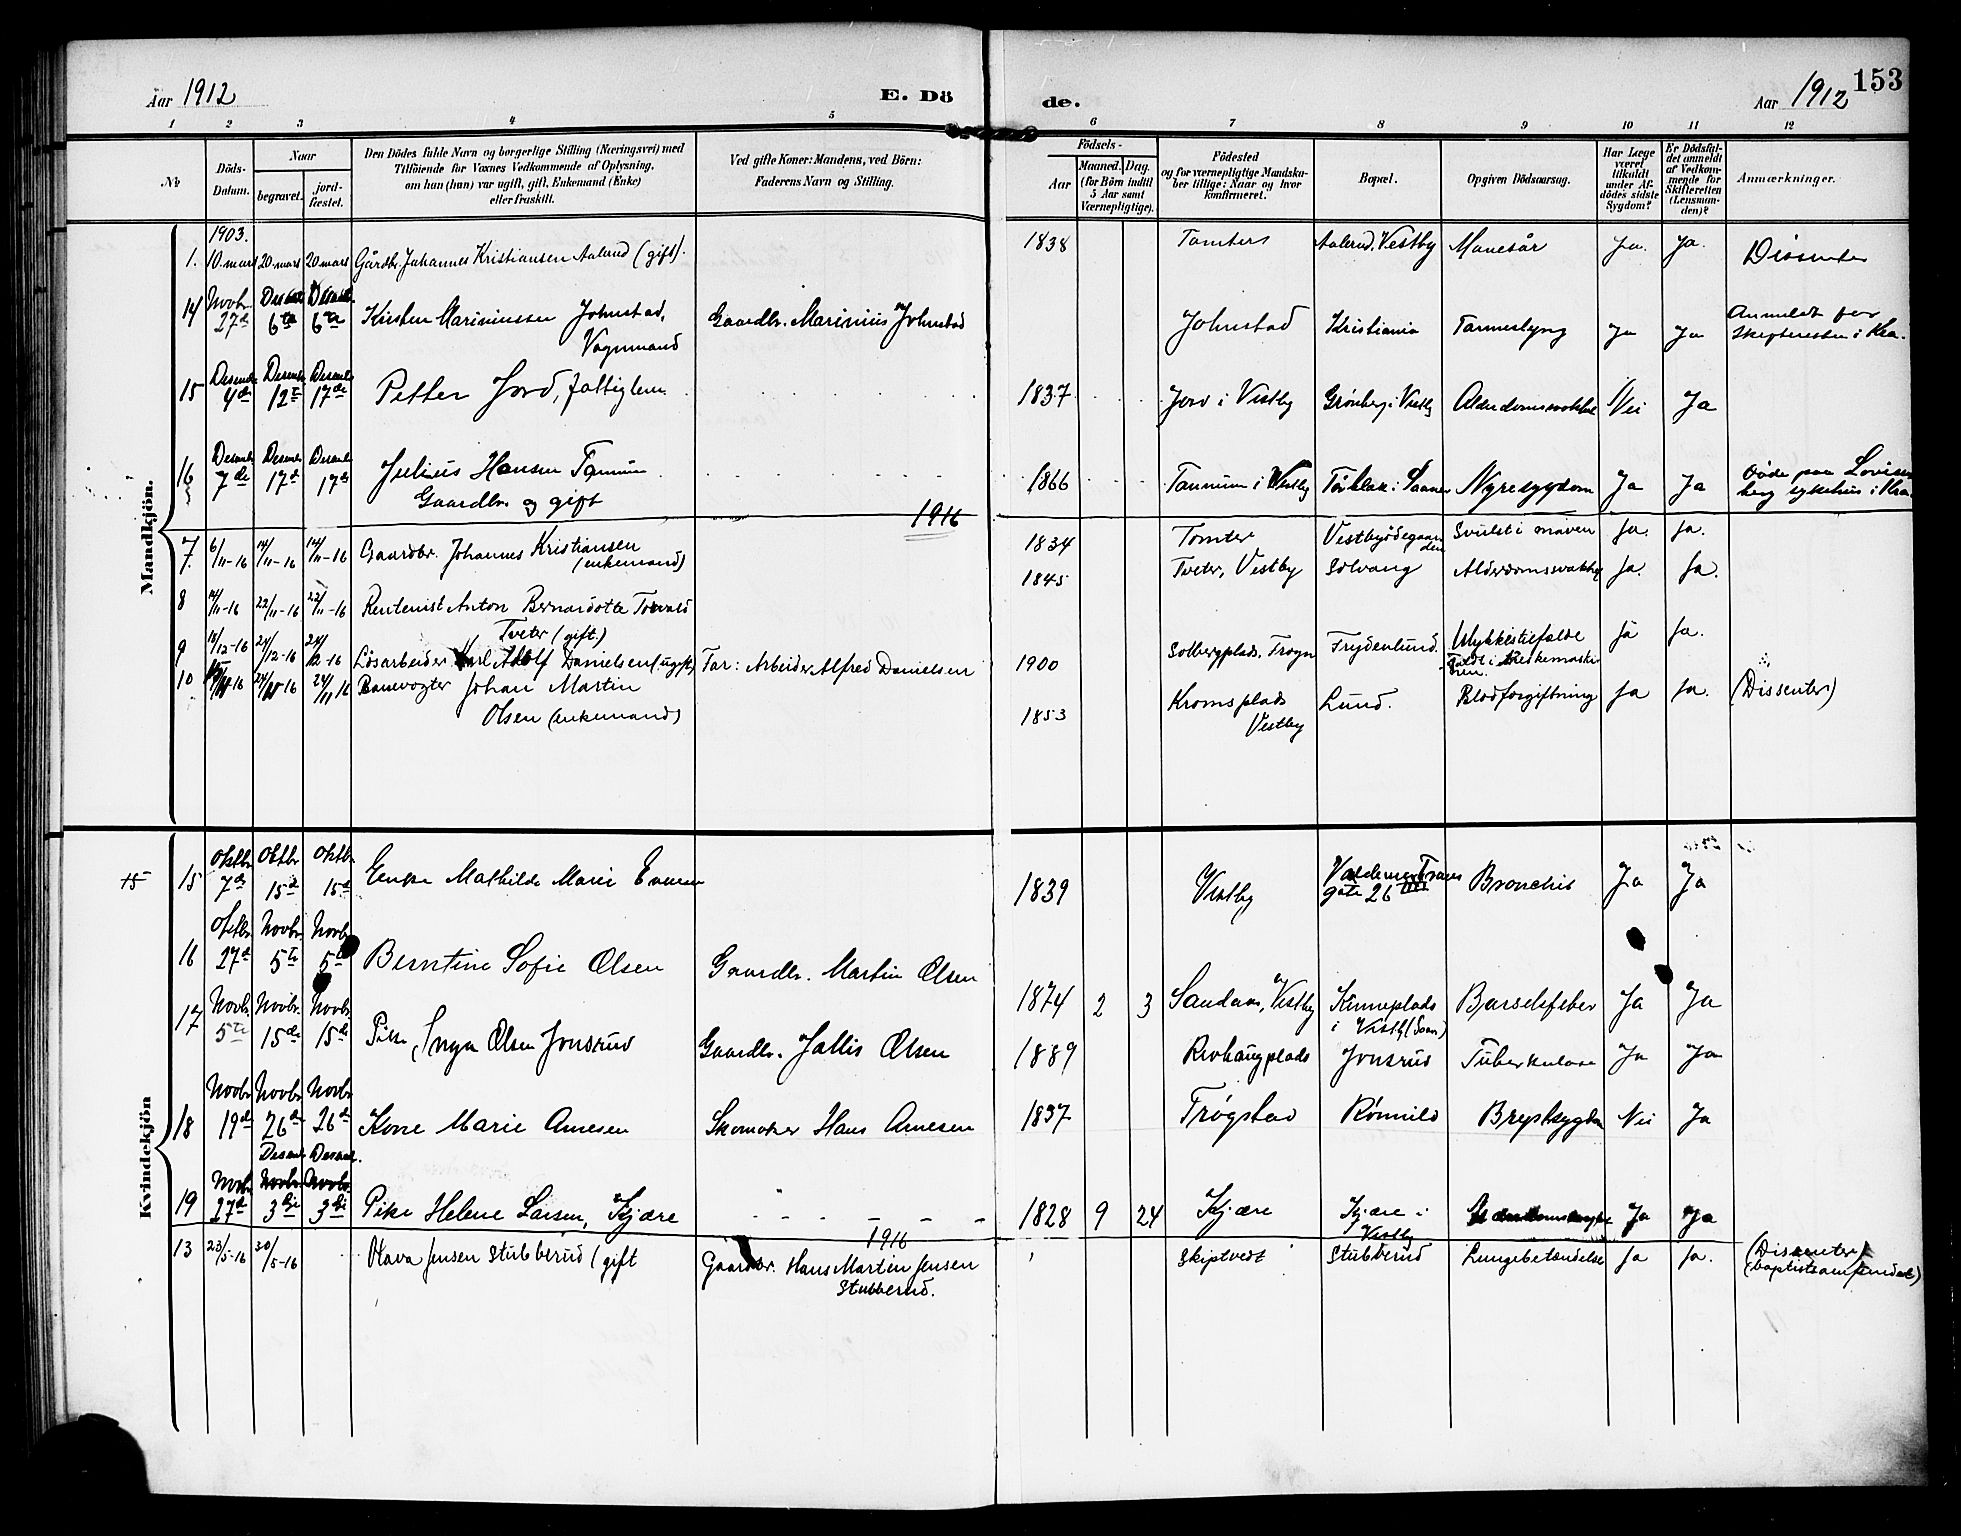 Aar 1912
E. Dö
de.
Aar 1912
153
1 2 3 4 5 6 7 8 9 10 11 12
No
Döds-
Datum.
Naar
begravet.
jord-
fæstet.
Den Dödes fulde Navn og borgerlige Stilling (Næringsvei) med
Tilföiende for Voxnes Vedkommende af Oplysning,
om han (hun) var ugift, gift, Enkemand (Enke)
eller fraskilt.
Ved gifte Koner: Mandens, ved Börn:
Faderens Navn og Stilling.
Födsels-
Aar
Maaned.
Dag.
(for Börn indtil
5 Aar samt
Værnepligtige).
Födested
og for værnepligtige Mandska-
ber tillige: Naar og hvor
konfirmeret.
Bopæl.
Opgiven Dödsaarsag.
Har Læge
været
tilkaldt
under Af-
dödes sidste
Sygdom?
Er Dödsfal-
det anmeldt
af Vedkom-
mende for
Skifteretten
(Lensman-
den)?
Anmærkninger.
Mandkjön.
1903.
1. 10 mars 20 mars 20 mars Gårdbr. Johannes Kristiansen Aalerud (gift). 1838 Tomters Aalerud, Vestby Mavesår Ja. Ja. Dissenter
14 Novbr. 27de Desembr 6te Desembr. 6te Kristen Mariniussen Johnstad, Gaardbr. Marinius Johnstad Johnstad Kristiania Tarmeslyng Ja Ja Anmeldt for
Vognmand Skifteretten i Kra.
15 Desembr 4de Desembr 12te Desembr 17de Petter Jord, fattiglem 1837 Jord i Vestby Grønberg i Vestby Alderdomssvakhet Nei Ja
16 Desembr 7de Desembr 17de Desembr 17de Julius Hansen Tannum 1866 Tannum i Vestby Nyresygdom Ja Ja Døde paa Lovisen
Gaardbr. og gift berg sykehus i Kra.
1916
7. 6/11-16 14/11-16 14/11-16 Gaardbr. Johannes Kristiansen 1834 Tomter Vestbyödegaar Svulst i maven Ja. Ja.
(enkemand) den
8 14/11-16 22/11-16 22/11-16 Rentenist Anton Bernardotte Torvald 1845 Tveter, Vestby Solvang Alderdomssvakhet Ja. Ja.
Tveter (gift.)
9 18/12-16 24/12-16 24/12-16 Lösarbeider Karl Adolf Danielsen (ugift) Far: Arbeider Alfred Danielsen 1900 Solbergplads, Frogn Frydenlund. Ulykkestilfælde Ja Ja.
Faldt i treskemaski-
nen.
10 24/11 16 Banevogter Johan Martin 1853 Kromsplads Lund. Blodforgiftning Ja Ja. (Dissenter)
Olsen (enkemand) Vestby
Kvindekjön
15 15 Oktbr 7de Oktbr 15de Oktbr. 15de Enke Mathilde Marie Evensen 1839 Vestby Valdemar Tranes Bronchit Ja Ja
gate 26 III
16 Oktbr. 27de Novbr. 5te Novbr. 5te Berntine Sofie Olsen Gaardbr. Martin Olsen 1874 2 3 Sandaas, Vestby Kinneplads Barselfeber Ja Ja
i Vestby (Soon)
17 Novbr. 5te Novbr. 15de Novbr. 15de Pike, Inga Olsen Jonsrud Gaardbr. Jallis Olsen 1889 Revhaugplads Jonsrud Tuberkulose Ja Ja
18 Novbr. 19de Novbr. 26de Novbr. 26de Kone Marie Arnesen Skomaker Hans Arnesen 1837 Trøgstad Rømuld Brystsygdom Nei Ja
Desembr Desembr.
19 Novbr 27de Novbr. 3dje Novbr. 3dje Pike Helene Larsen, Kjære 1828 9 24 Kjære Kjære i Ja Ja
Vestby
1916
13 23/5-16 30/5-16 Olava Jensen Stubberud (gift Gaardbr. Hans Martin Jensen Skiptvedt Stubberud Lungebetændelse Ja Ja. (Dissenter)
Stubberud. (baptistsamfundet)